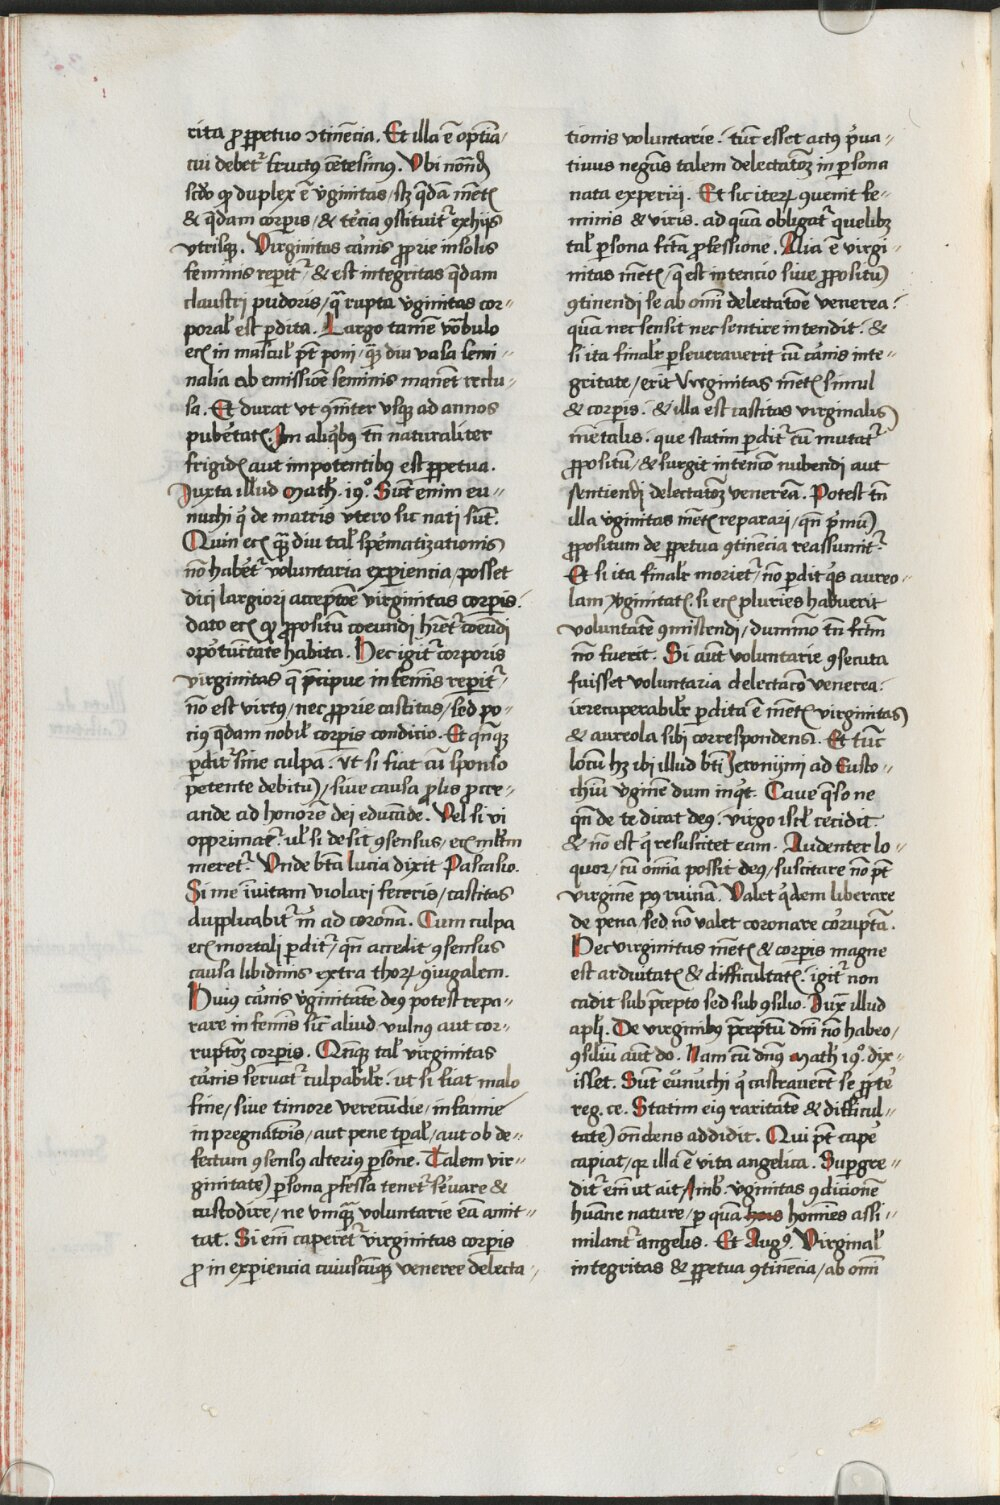 rita ꝓ ꝑpetuo ↄtinēcia. Et illa ē optīa /
cui debetᷣ fructꝯ cētesimꝯ. Vbi nōnd̄
scdō ꝙ duplex ē v̄ginitas / scꝫ q̄dam mētꝭ
& q̄dam corꝑis / & tēcia ꝯstituitᷣ ex hijs
vtrisqꝫ. Virginitas cānis ꝓprie in solis
feminis reꝑitᷣ / & est integritas q̄dam
claustri pudoris / q̄ rupta v̄ginitas cor⸗
poral̓ est ꝑdita. Largo tamē vōbulo
ecꝭ in mascul̓ pt̄ poni / qꝫ diu vasa semi⸗
nalia ab emissiōe seminis manēt reclu⸗
sa. Et durat vt cōīter vsqꝫ ad annos
pubētatꝭ. In aliq̓bꝯ tn̄ naturaliter
frigidꝭ aut impotentibꝯ est ꝑpetua.
Juxta illud Math̓. 19°. Sūt enim eu⸗
nuchi q̓ de matris vtero sic nati sūt.
Quin ecꝭ qꝫ diu tal̓ spērmatizationis
nō habetᷣ voluntaria exꝑiencia / posset
dici largiori acceptōe virginitas corꝑis.
dato ecꝭ ꝙ ꝓpositū coeundi hr̄etᷣ coeūdi
opōtunitate habita. Hec igitᷣ corporis
virginitas q̄ p̄cipue in femīs reꝑitᷣ /
nō est virtꝯ / nec ꝓprie castitas / sed po⸗
ciꝯ q̄dam nobil̓ corꝑis condicio. Et qn̄qꝫ
ꝑditᷣ sine culpa. vt si fiat cū sponso
petente debitū / siue causa ꝓlis ꝓcre⸗
ande ad honorē dei educāde. Vel si vi
opprimatᷣ. ul̓ si desit ꝯsensus / ecꝭ mltm̄
meretᷣ. Vnde bt̄a lucia dixit Pascasio.
Si me īuitam violari feceris / castitas
dupplicabitᷣ m̄ ad coronā. Cum culpa
ecꝭ mortali ꝑditᷣ / qn̄ accedit ꝯsensus
causa libidinis extra thorꝝ ꝯiugalem.
Huiꝯ cānis v̄ginitatē deꝯ potest repa⸗
rare in femīs sic̄ aliud vulnꝯ aut cor⸗
ruptōꝫ corꝑis. Qn̄qꝫ tal̓ virginitas
cānis seruatᷣ culpabil̓r. ut si fiat malo
fine / siue timore verecūdie / infamie
inpregnatōis / aut pene tꝑal̓ / aut ob de⸗
fectum ꝯsensꝯ alteriꝯ ꝑsone. Talem vir⸗
ginitatē ꝑsona ꝓfessa tenetᷣ sēuare &
custodire / ne vmqꝫ voluntarie eā amit⸗
tat. Si em̄ caperetᷣ virginitas corꝑis
ꝓ in exꝑiencia cuiuscūqꝫ veneree delecta⸗
tionis voluntarie. tūc esset actꝯ p̓ua⸗
tiuus negās talem delectatōꝫ in ꝑsona
nata experiri. Et sic iteꝝ ꝯuenit fe⸗
minis & viris. ad quā obligatᷣ quelibꝫ
tal̓ ꝑsona fctā ꝓfessione. Alia ē virgi⸗
nitas mētꝭ / q̄ est intencio siue ꝓpositū
ꝯtinendi se ab omī delectatōe venerea.
quā nec sensit nec sentire intendit. &
si ita finalr̓ ꝑseuerauerit cū cānis inte⸗
gritate / erit Virginitas mētꝭ simul
& corꝑis. & illa est castitas virginalis
mētalis. que statim ꝑditᷣ cū mutatᷣ
ꝓpositū / & surgit intencō nubendi aut
sentiendi delectatōꝫ venereā. Potest tn̄
illa v̄ginitas mētꝭ reparari / qn̄ p̓mū
ꝓpositum de ꝑpetua ꝯtinēcia reassumitᷣ.
Et si ita finalr̓ morietᷣ / nō ꝑdit q̓s aureo⸗
lam v̄ginitatꝭ. si ecꝭ pluries habuerit
voluntatē ꝯmiscendi / dummō tn̄ fctm̄
nō fuerit. Si aūt voluntarie ꝯsecuta
fuisset voluntaria delectacō venerea.
irrecuperabil̓r ꝑdita ē mētꝭ virginitas
& aureola sibi correspondens. Et tūc
locū hꝫ ibi illud bt̄i Jeronijmi ad Eusto⸗
chiū v̄ginē dum inq̓t. Caue q̄so ne
qn̄ de te dicat deꝯ. virgo isrl̓ cecidit.
& nō est q̓ resuscitet eam. Audenter lo⸗
quor / cū omīa possit deꝯ / suscitare nō pt̄
virginē pꝯ ruinā. Valet q̓dem liberare
de pena / sed nō valet coronare coruptā.
Hec virginitas mētꝭ & corꝑis magne
est arduitatꝭ & difficultatꝭ. igitᷣ non
cadit sub p̄cepto sed sub ꝯsilio. Juxͣ illud
apl̓i. De virginibꝯ p̄ceptū dn̄i nō habeo /
ꝯsiliū aūt do. Nam cū dn̄ꝯ Math̓ 19°. dix⸗
isset. Sūt eunuchi q̓ castrauerūt se ꝓpt̓
reg. ce. Statim eiꝯ raritatē & difficul⸗
tatē on̄dens addidit. Qui pt̄ cape̓
capiat / qꝛ illa ē vita angelica. Supergre⸗
ditᷣ em̄ ut ait Amb̓. v̄ginitas ꝯdicionē
hūane nature / ꝑ quā hoīs homīes assi⸗
milantᷣ angelis. Et Augꝯ. Virginal̓
integritas & ꝑpetua ꝯtinēcia / ab omī